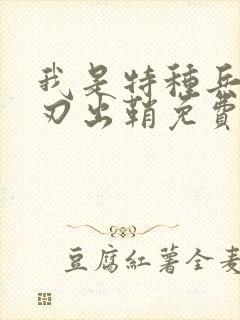 我是特種兵
刃出鞘免費
豆腐紅薯全麥